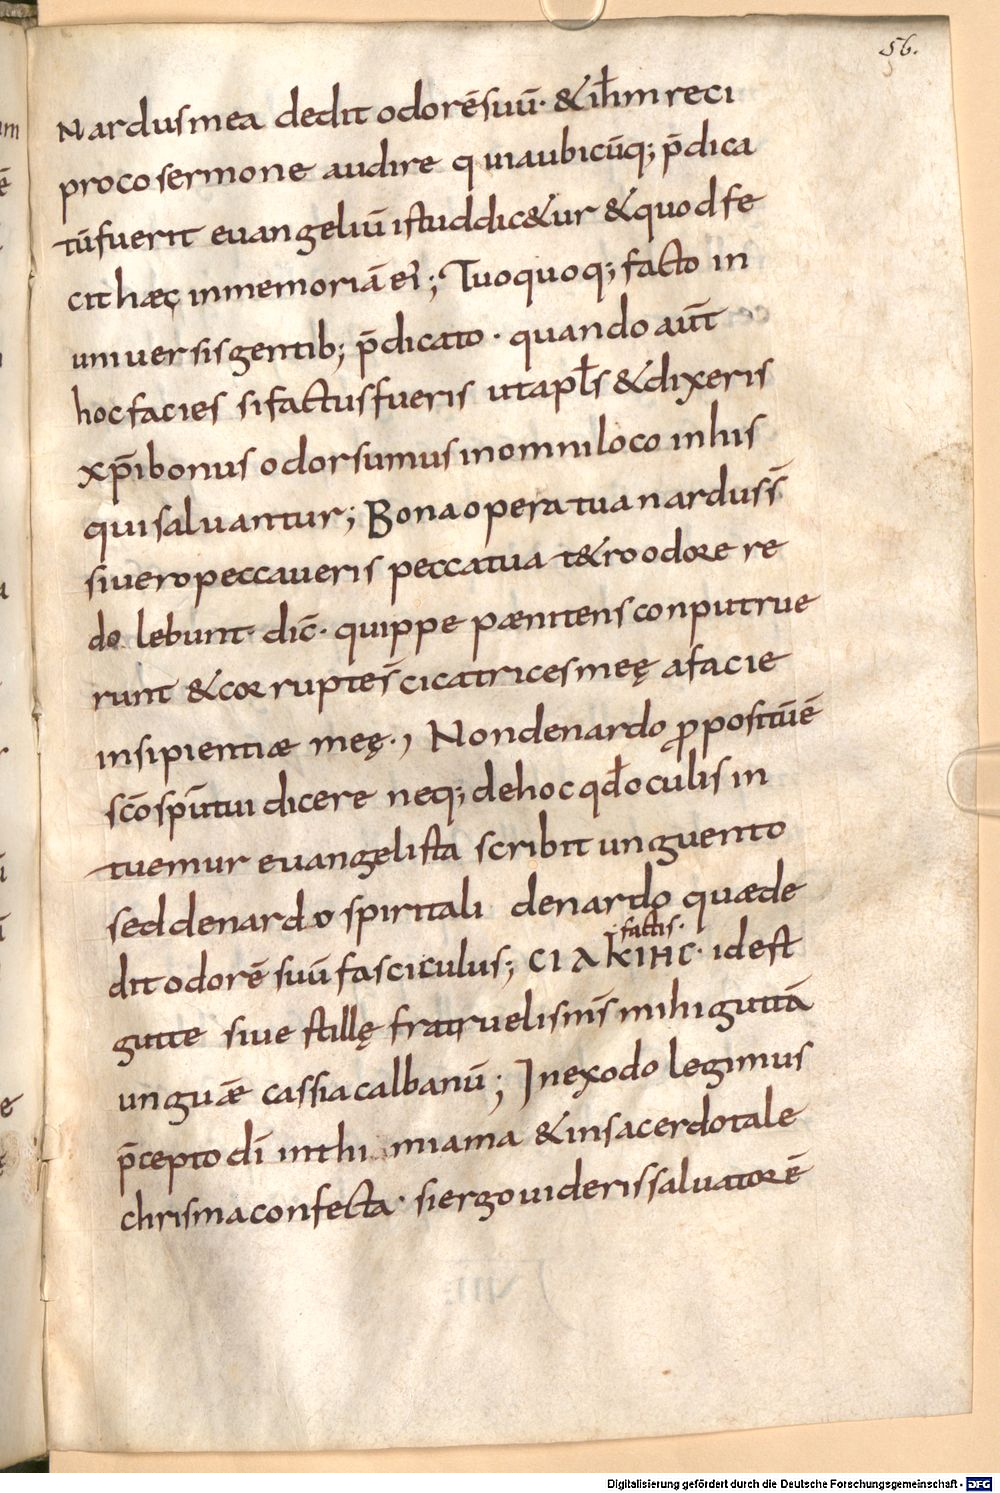 56.
Nardus mea dedit odorē suū· & ih̄m reci
proco sermone audire quia ubicūq; p̄dica
tū fuerit euangeliū istud dic&ur & quod fe
cit hæç in memoriā eī; Tuo quoq; facto in
uniuersis gentib; p̄dicato· quando aūt
hoc facies si factus fueris ut apłs & dixeris
xp̄i bonus odor sumus in omni loco in his
qui saluantur; Bona opera tua nardus s̄
si uero peccaueris peccatua t&ro odore re
dolebunt· dic̄· quippe pænitens conputrue
runt & corruptę s̄ cicatrices meę a facie
insipientiæ meę·, Non de nardo ꝓpositū ē
sc̄o sp̄uītui dicere neq; de hoc qđ oculis in
tuemur euangelista scribit unguento
sed de nardo spiritali de nardo quæ de
dit odorē suū fasciculus; CTAKTHC· id est
·factis·
gutte siue stillę fratruelis m̄s mihi guttā
unguæ cassia calbanū; In exodo legimus
p̄cepto dī in thimiama & in sacerdotale
chrisma confecta· si ergo uideris saluatorē
Digitalisierung gefördert durch die Deutsche Forschungsgemeinschaft - DFG